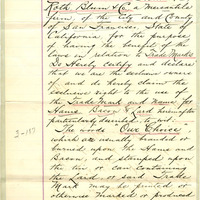 Roth Blum & Co a mercantile
firm of the City and County
of San Francisco, State of
California for the purpose
of having the benefit of the
laws in relation to Trade Marks
Do Hereby certify and declare
that we are the exclusive owners
of and do hereby claim the
exclusive right to the use of
the Trade Mark and Name for
Hams, Bacon & Lard hereinafter
particularly described to wit:
The words "Our Choice"
which are usually branded or
burned upon the Hams and
Bacon, and stamped upon
the tin or can containing
the Lard or said Trade
Mark may be printed or
otherwise marked or produced